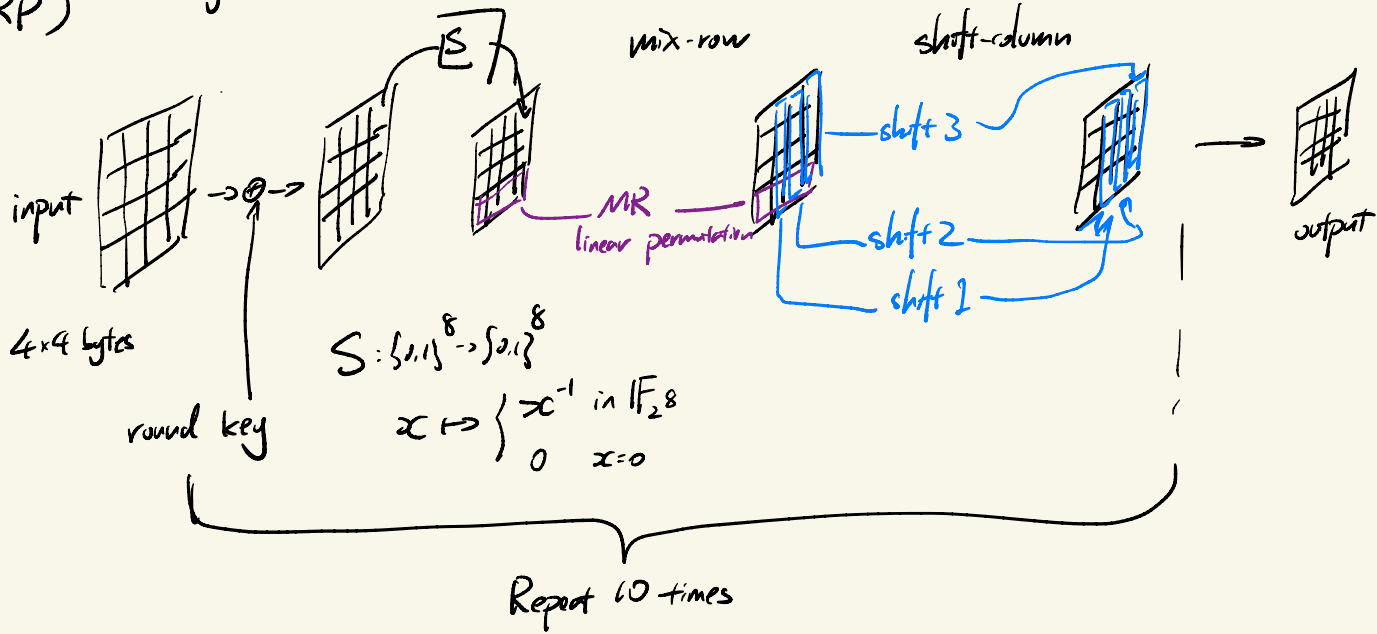 RP)
S
mix-row
shift-column
input
shift 3
MR
linear permutation
shift 2
shift 1
output
4×4 bytes
round key
S: {0,1}⁸→{0,1}⁸
x ↦ { x⁻¹ in 𝔽₂8
0 x=0
Repeat 10 times